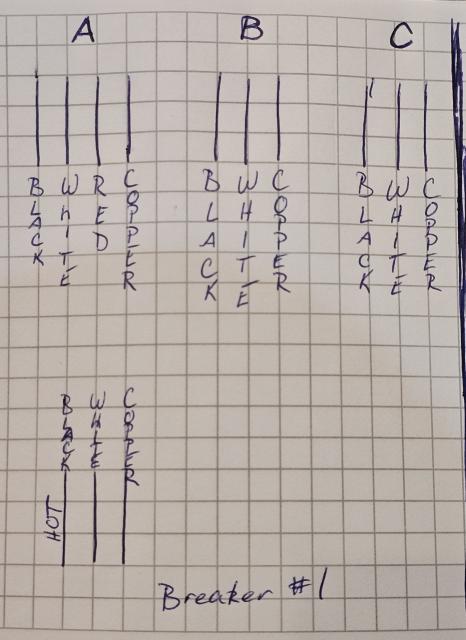 A B C
BLACK WHITE RED COPPER BLACK WHITE COPPER BLACK WHITE COPPER
BLACK WHITE COPPER
HOT
Breaker #1